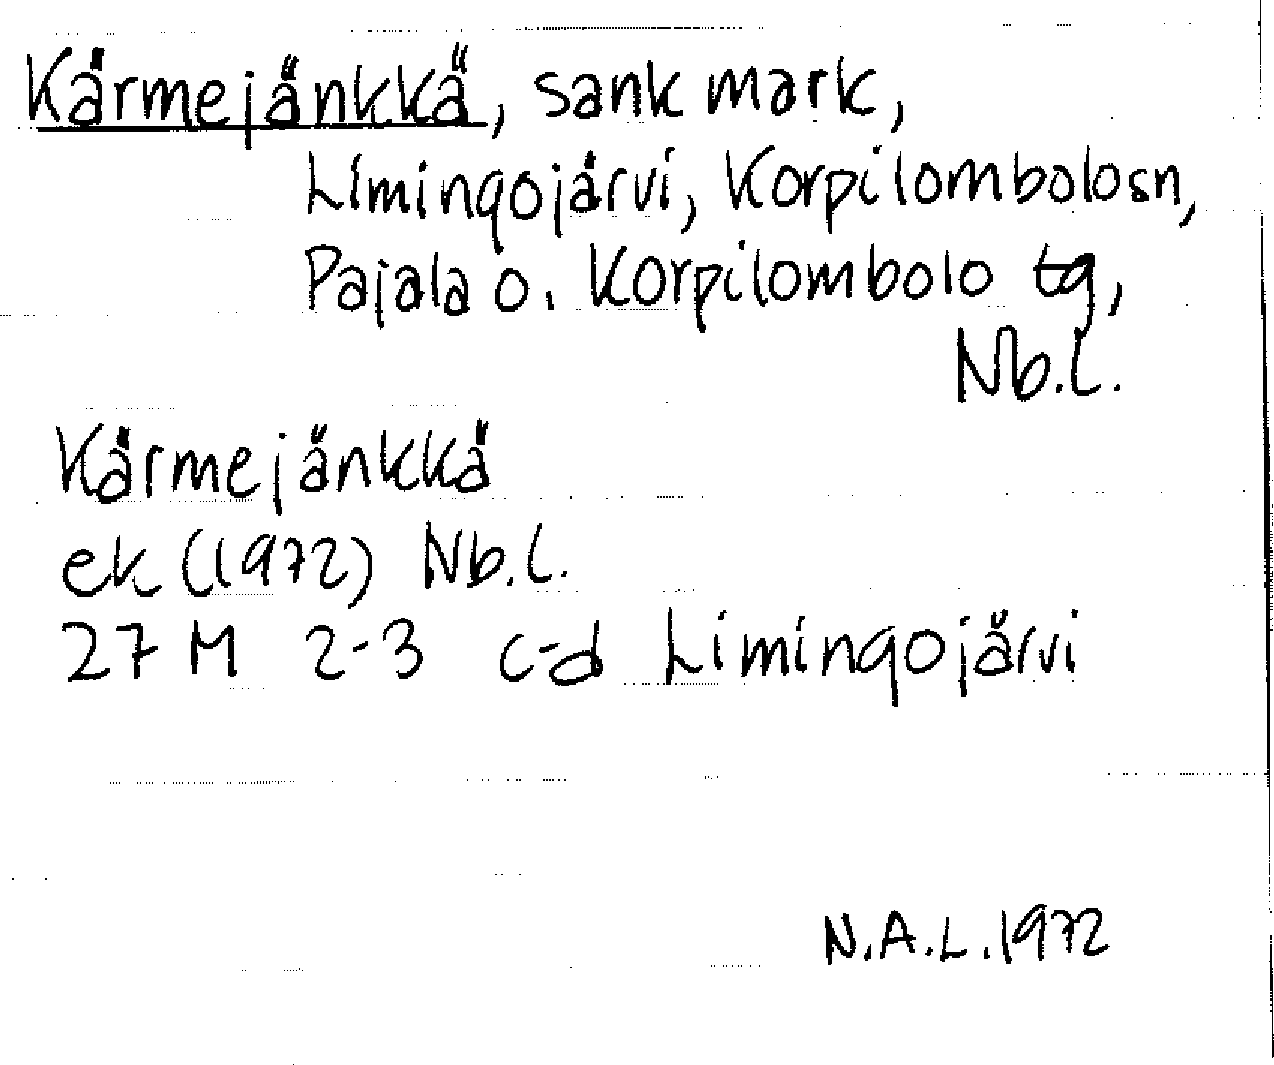 Kärmejänkkä, sank mark,
Limingojärvi, Korpilombolosn,
Pajala o. Korpilombolo tg,
Nb.l.
Kärmejänkkä
ek (1972) Nb.l.
27 M 2-3 c-d Limingojärvi
N.A.L. 1972